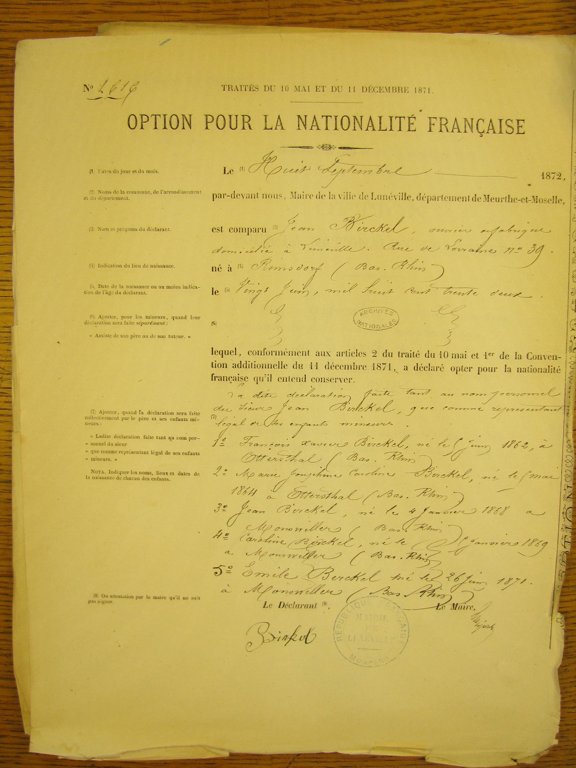 TRAITÉS DU 10 MAI ET DU 11 DÉCEMBRE 1871.
OPTION POUR LA NATIONALITÉ FRANÇAISE
(1) Dates du jour et du mois.
Le (1) Huit Septembre 1872,
(2) Noms de la commune, de l'arrondissement et du département.
par-devant nous, Maire de la ville de Lunéville, département de Meurthe-et-Moselle,
(3) Nom et prénoms du déclarant.
est comparu (3) Jean Birckel, ouvrier
domicilié à Lunéville. Rue de Lorraine nº 39
(4) Indication du lieu de naissance.
né à (4) (Bas-Rhin)
le (5) Vingt Juin, mil huit cent trente deux.
(6) Ajouter, pour les mineurs, quand leur déclaration sera faite séparément :
« Assisté de son père ou de son tuteur. »
ARCHIVES NATIONALES
lequel, conformément aux articles 2 du traité du 10 mai et 1er de la Conven-
tion additionnelle du 11 décembre 1871, a déclaré opter pour la nationalité
française qu'il entend conserver.
La dite déclaration faite tant au nom personnel
du sieur Jean Birckel, que comme représentant
légal de ses enfants mineurs.
(7) Ajouter, quand la déclaration sera faite collectivement par le père et ses enfants mineurs :
« Ladite déclaration faite tant au nom personnel du sieur
« que comme représentant légal de ses enfants mineurs. »
NOTA. Indiquer les noms, lieux et dates de la naissance de chacun des enfants.
1º François Xavier Birckel, né le Juin 1862, à
Ottersthal (Bas-Rhin)
2º Marie Joséphine Caroline Birckel, née le mai
1864 à Ottersthal (Bas-Rhin)
3º Jean Birckel, né le 4 Janvier 1868 à
Monswiller (Bas-Rhin)
4º Caroline Birckel, née le Janvier 1869
à Monswiller (Bas-Rhin)
5º Emile Birckel né le 26 Juin 1871.
à Monswiller (Bas-Rhin)
(8) Ou attestation par le maire qu'il ne sait pas signer.
Le Déclarant (8). Le Maire.
Birckel
RÉPUBLIQUE FRANÇAISE
MAIRIE DE LUNÉVILLE